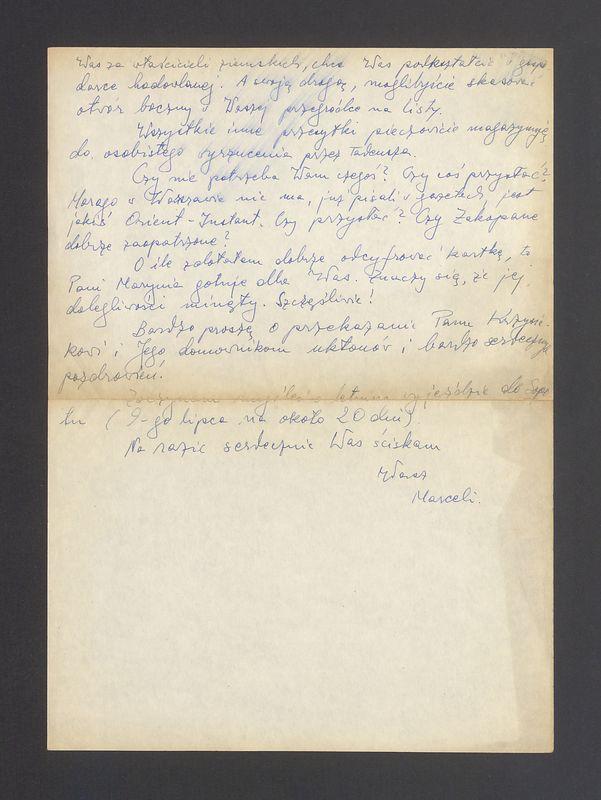 Was za właścicieli ziemskich, chce Was podkształcić w gospo
darce hodowlanej. A swoją drogą, moglibyście skasować
otwór boczny w Waszej przegródce na listy.
Wszystkie inne przesyłki pieczołowicie magazynuję
do osobistego wyrzucenia przez Tadeusza.
Czy nie potrzeba Wam czegoś? Czy coś przysłać?
Marago w Warszawie nie ma, już pisali w gazetach, jest
jakiś Orient-Instant. Czy przysłać? Czy Zakopane
dobrze zaopatrzone?
O ile zdołałam dobrze odcyfrować kartkę, to
Pani Marynia gotuje dla Was. Znaczy się, że jej
dolegliwości minęły. Szczęśliwie!
Bardzo proszę o przekazanie Panu
kowi i Jego domownikom ukłonów i bardzo serdecznych
pozdrowień.
myśleć o letnim wyjeździe do Sopo
tu (9-go lipca na około 20 dni).
Na razie serdecznie Was ściskam
Wasz
Marceli.